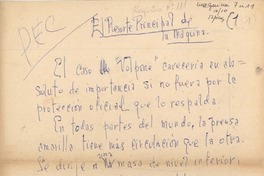 PEC
El Resorte Principal de
la Máquina.
El Caso "Volpone" carecería en ab-
soluto de importancia si no fuera por la
protección oficial que lo respalda.
En todas partes del mundo, la prensa
amarilla tiene más circulación que la otra.
Se dirige a una masa de nivel inferior,